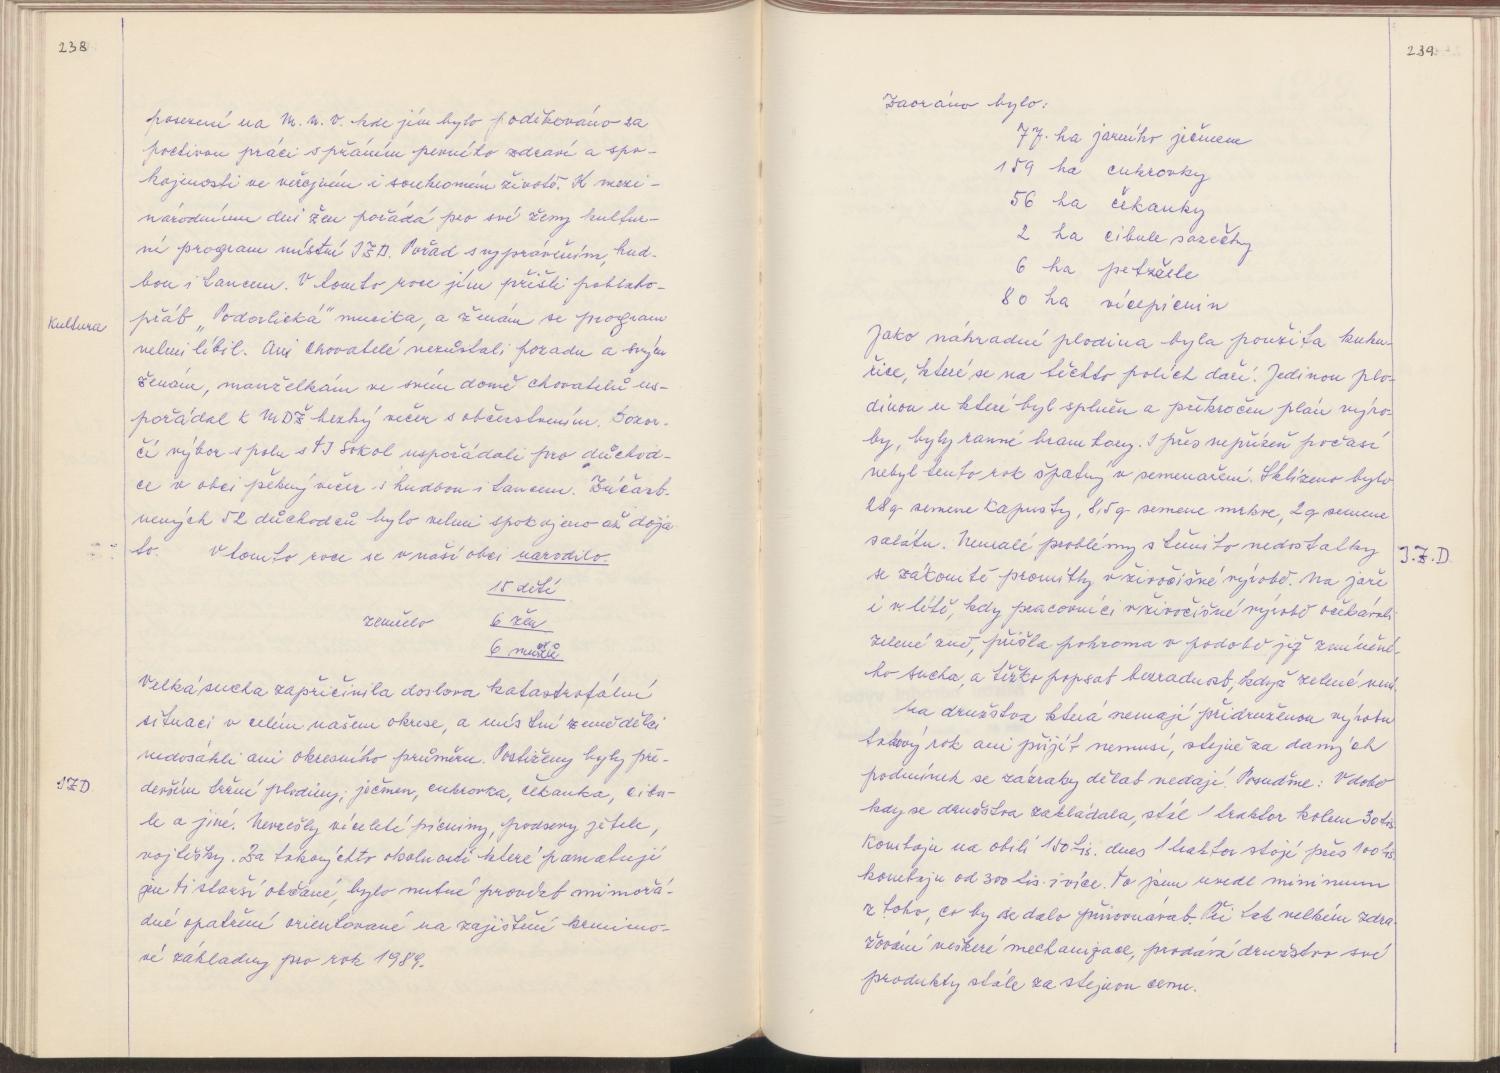 238
posezení na M. n. v. kde jím bylo poděkováno za
poctivou práci s přáním pevného zdraví a spo-
kojenosti ve veřejném i soukromém životě. K mezi-
národnímu dni žen pořádá pro své ženy kultur-
ní program místní JZD. Pořad s vyprávěním, hud-
bou i tancem. V tomto roce jím přišli poblaho-
Kultura
přáb "Podorlická" muzika, a ženám se program
velmi líbil. Ani chovatelé nezůstali pozadu a svým
ženám, manželkám ve svém domě chovatelů us-
pořádal k MDŽ hezký večer s občerstvením. Sozor-
čí výbor spolu s TJ Sokol uspořádali pro důchod-
ce v obci pěkný večer s hudbou i tancem. Zúčast-
něných 52 důchodců bylo velmi spokojeno až doja-
to. V tomto roce se v naší obci narodilo.
15 dětí
zemřelo 6 žen
6 mužů
Velká sucha zapříčinila doslova katastrofální
situaci v celém našem okrese, a místní zemědělci
nedosáhli ani okresního průměru. Postiženy byly pře-
JZD
devším tržní plodiny; ječmen, cukrovka, čekanka, cibu-
le a jiné. Nevzešly víceleté pícniny, podsevy jetele,
vojtěšky. Za takovýchto okolností které pamatují
jen ti starší občané, bylo nutné provézt mimořá-
dné opatření orientované na zajištění krmivo-
vé základny pro rok 1989.
239
Zaoráno bylo:
77. ha jarního ječmene
159 ha cukrovky
56 ha čekanky
2 ha cibule sazečky
6 ha petržele
80 ha vícepícnin
Jako náhradní plodina byla použita kuku-
řice, které se na těchto polích daří. Jedinou plo-
dinou u které byl splněn a překročen plán výro-
by, byly ranné brambory. I přes nepřízeň počasí
nebyl tento rok špatný v semenaření. Sklizeno bylo
28q semene kapusty, 8,5q semene mrkve, 2q semene
salátu. Nemalé problémy s těmito nedostatky
J.Z.D.
se zákonitě promítly v živočišné výrobě. Na jaře
i v létě, kdy pracovníci v živočišné výrobě očekávali
zelené žně, přišla pohroma v podobě již zmíněné-
ho sucha, a těžko popsat bezradnost, když zelené není.
Na družstva která nemají přidruženou výrobu
takový rok ani přijít nemusí, stejně za daných
podmínek se zázraky dělat nedají. Posuďme: V době
kdy se družstva zakládala, stál 1 traktor kolem 30 tis.
Kombajn na obilí 150 tis. dnes 1 traktor stojí přes 100 tis.
kombajn od 300 tis. i více. To jsem uvedl minimum
z toho, co by se dalo přirovnávat. Při tak velkém zdra-
žování veškeré mechanizace, prodává družstvo své
produkty stále za stejnou cenu.